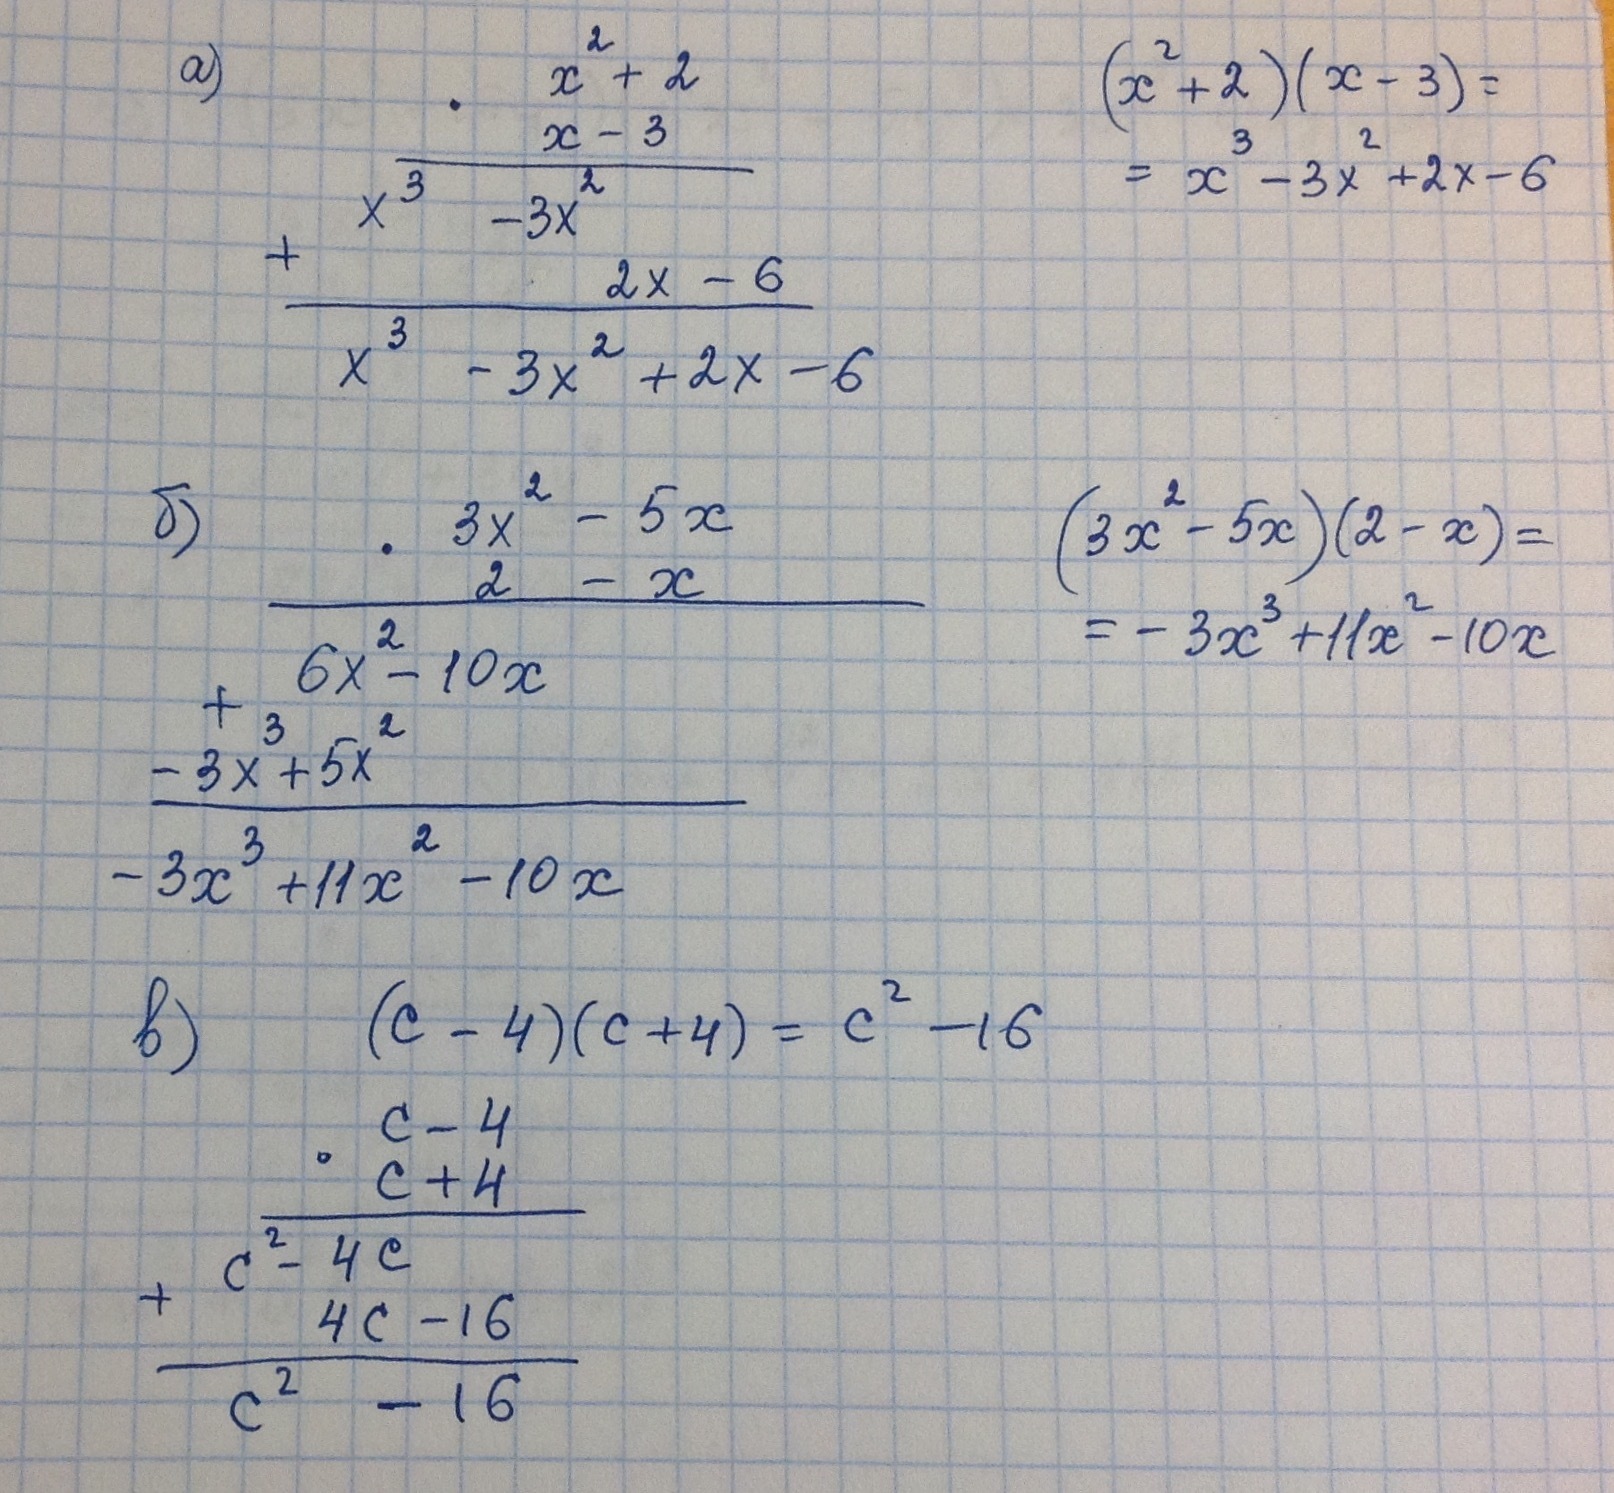 а) x² + 2
· x - 3
x³ - 3x²
+ 2x - 6
x³ - 3x² + 2x - 6
(x² + 2)(x - 3) =
= x³ - 3x² + 2x - 6
б) 3x² - 5x
· 2 - x
6x² - 10x
+
- 3x³ + 5x²
- 3x³ + 11x² - 10x
(3x² - 5x)(2 - x) =
= - 3x³ + 11x² - 10x
в) (c - 4)(c + 4) = c² - 16
c - 4
· c + 4
c² - 4c
+ 4c - 16
c² - 16